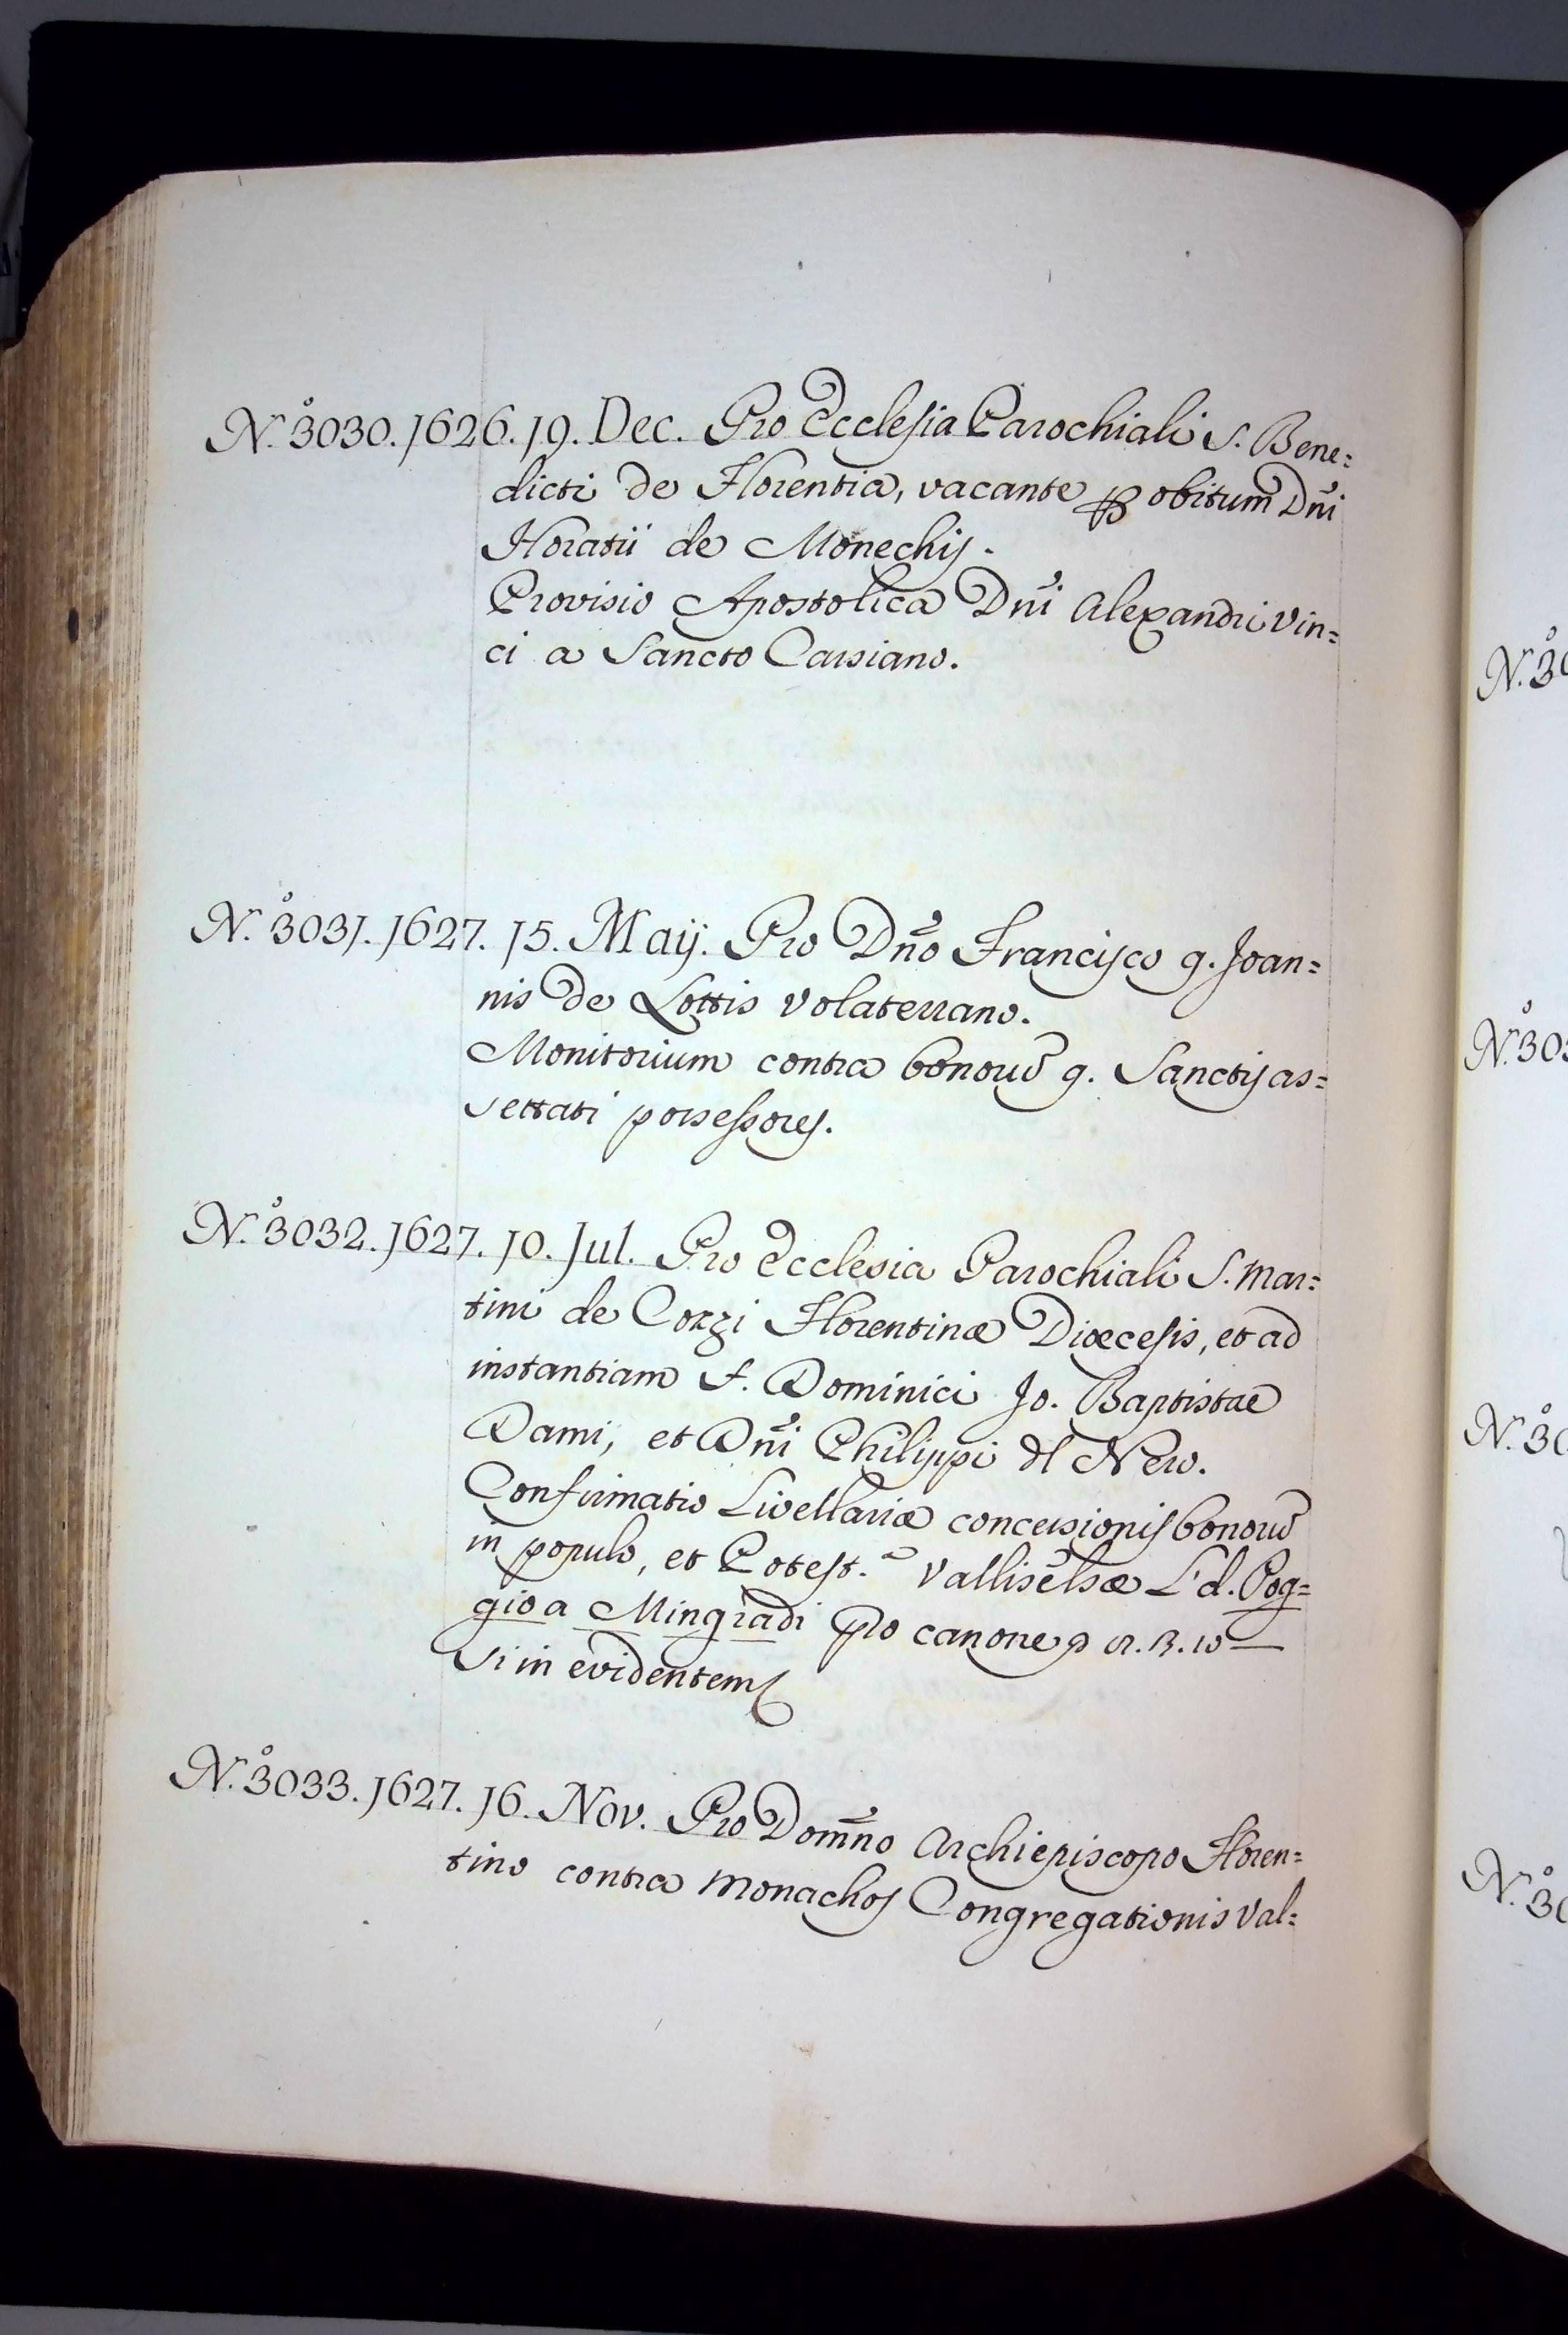 N.º 3030. 1626. 19. Dec. Pro Ecclesia Parochiali S. Bene=
dicti de Florentia, vacante ꝑ obitum Dñi
Horatii de Monechis.
Provisio Apostolica Dñi Alexandri Vin=
ci a Sancto Cassiano.
N.º 3031. 1627. 15. Maij. Pro Dño Francisco q. Joan=
nis de Lottis Volaterrano.
Monitorium contra bonorũ q. Sanctis as=
settati possessores.
N.º 3032. 1627. 10. Jul. Pro Ecclesia Parochiali S. Mar=
tini de Cozzi Florentinæ Diœcesis, et ad
instantiam f. Dominici Jo. Baptistae
Dami, et Dñi Philippi dl Nero.
Confirmatio Livellariæ concessionis bonorũ
in populo, et Potest. Valliselsæ L. d. Pog=
gio a Mingradi pro canone
Si in evidentem
N.º 3033. 1627. 16. Nov. Pro Domño Archiepiscopo Floren=
tino contra Monachos Congregationis Val=
N. 30
N.º 303
N.º 30
N.º 30